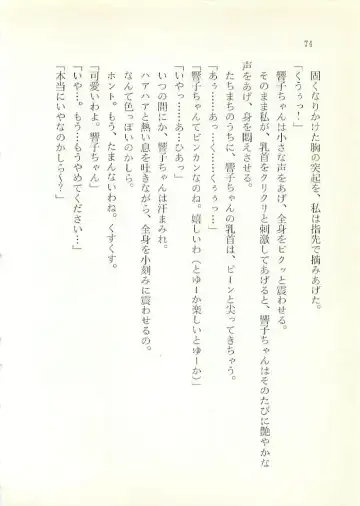 74
固くなりかけた胸の突起を、私は指先で摘みあげた。
「くうぅっ！」
響子ちゃんは小さな声をあげ、全身をピクッと震わせる。
そのまま私が、乳首をクリクリと刺激してあげると、響子ちゃんはそのたびに艶やかな
声をあげ、身を悶えさせる。
たちまちのうちに、響子ちゃんの乳首は、ピーンと尖ってきちゃう。
「あぅ……あっ…く…くぅぅっ…」
「響子ちゃんてビンカンなのね。嬉しいわ（とゆーか楽しいとゆーか）」
「いやっ……あ…ひあっ」
いつの間にか、響子ちゃんは汗まみれ。
ハアハアと熱い息を吐きながら、全身を小刻みに震わせるの。
なんて色っぽいのかしら。
ホント。もう、たまんないわね。くすくす。
「可愛いわよ。響子ちゃん」
「いや…。もう…もうやめてください…」
「本当にいやなのかしら〜？」